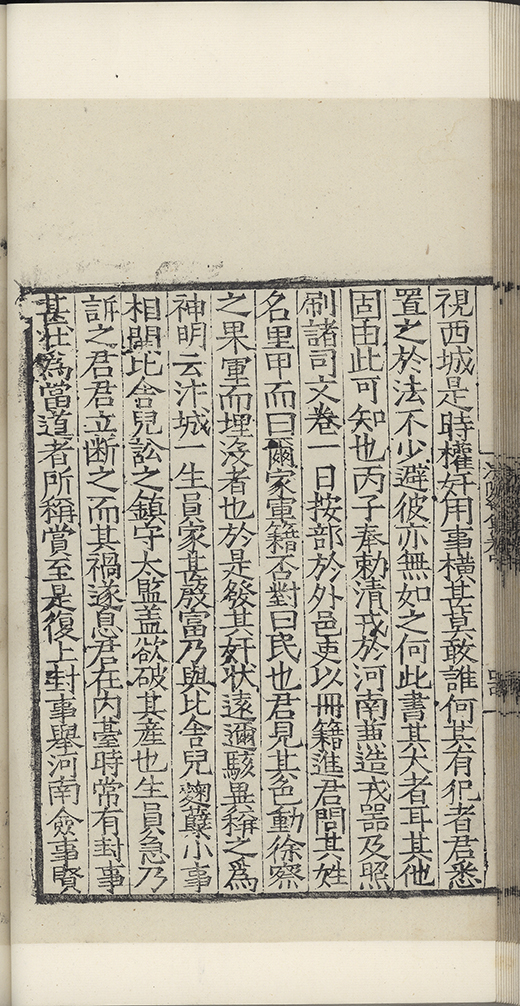 視西城是時權奸用事橫甚莫敢誰何其有犯者君悉
置之於法不少避彼亦無如之何此書其大者耳其他
固由此可知也丙子奉勑清戎於河南兼造戎器及照
刷諸司文卷一日按部於外邑吏以冊籍進君問其姓
名里甲而曰爾家軍籍否對曰民也君見其色動徐察
之果軍而埋没者也於是發其奸状遠邇駭異稱之為
神明云汴城一生員家甚殷富乃與比舍兒麴蘖小事
相鬩比舍兒訟之鎮守太監盖欲破其產也生員急乃
訴之君君立断之而其禍遂息君在内臺時常有封事
甚壮為當道者所稱賞至是復上封事舉河南僉事賢